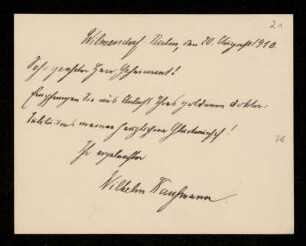 21
Wilmersdorf Berlin, den 20. August 1910.
Sehr geehrter Herr Geheimrat!
Empfangen Sie aus Anlaß Ihres goldenen Doktor-
Jubiläums meinen herzlichsten Glückwunsch!
Ihr ergebenster
Wilhelm Kaufmann